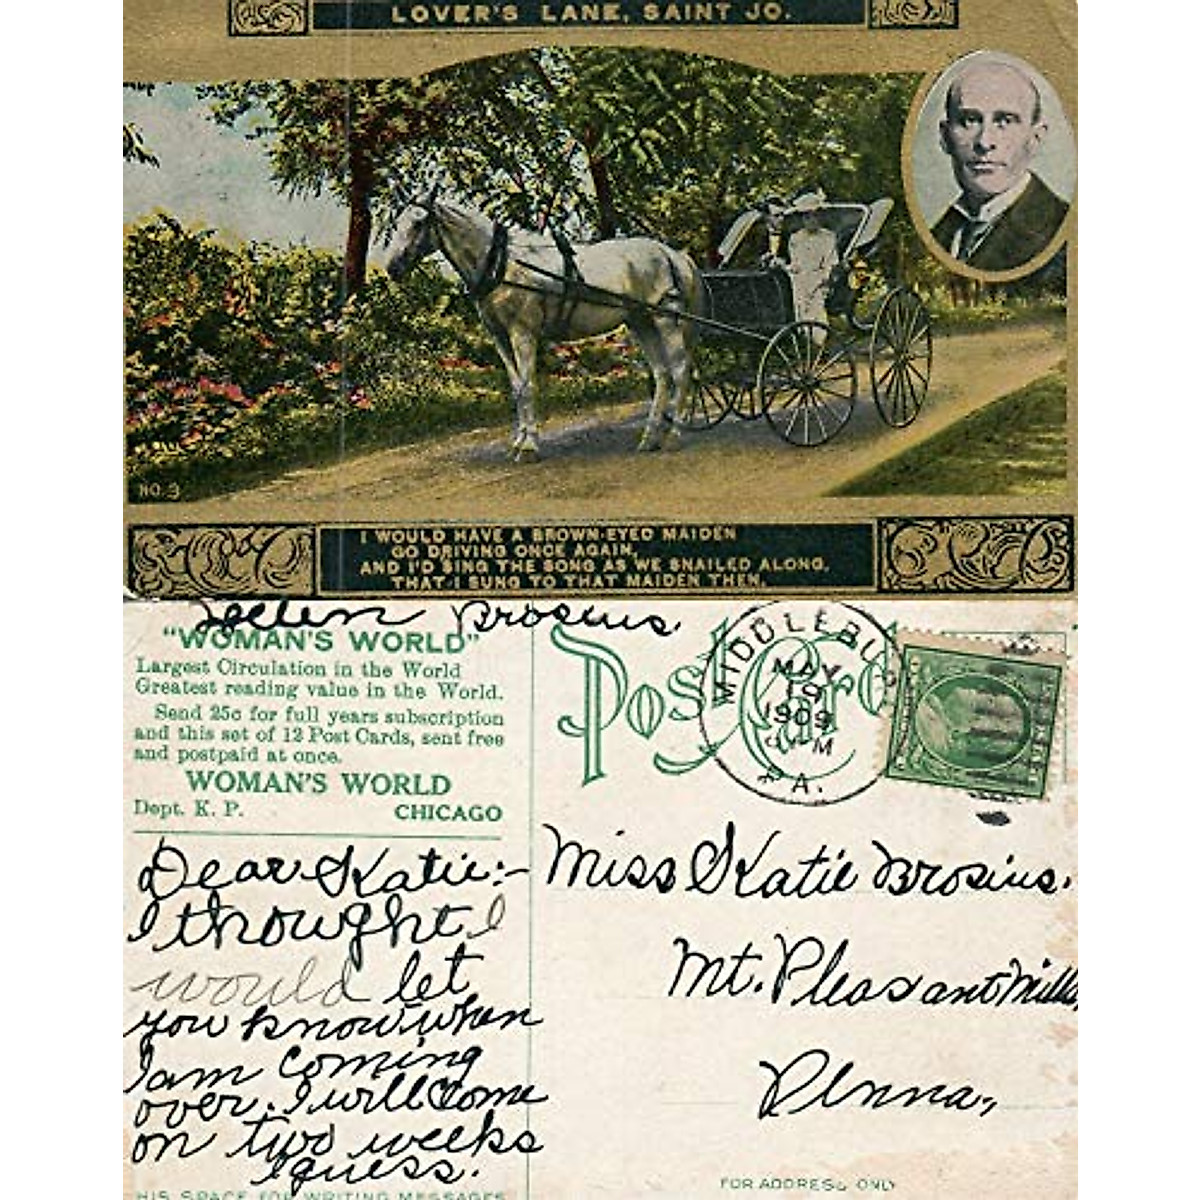 LOVER'S LANE, SAINT JO.
NO. 3
I WOULD HAVE A BROWN-EYED MAIDEN
GO DRIVING ONCE AGAIN,
AND I'D SING THE SONG AS WE SNAILED ALONG,
THAT I SUNG TO THAT MAIDEN THEN.
Brosius.
"WOMAN'S WORLD"
Largest Circulation in the World
Greatest reading value in the World.
Send 25c for full years subscription
and this set of 12 Post Cards, sent free
and postpaid at once.
WOMAN'S WORLD
Dept. K. P. CHICAGO
Dear Katie:-
I thought I
would let
you know when
I am coming
over. I will come
on two weeks
I guess.
HIS SPACE FOR WRITING MESSAGES
Post Card
MIDDLEBUR
MAY
19
1909
M
PA.
Miss Katie Brosius.
Mt. Pleasant Mills,
Penna.,
FOR ADDRESS ONLY